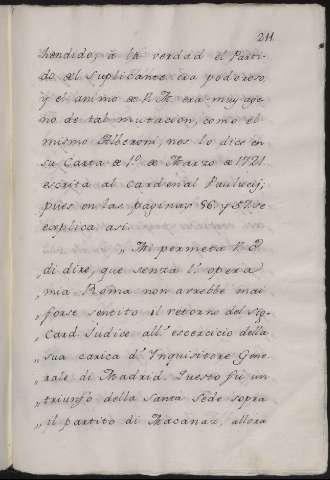 211
hendido; à la verdad el Parti-
do del Suplicante era poderoso
y el animo de V. M. era muy age-
no de tal mutacion, como el
mismo Alberoni, nos lo dice en
su Carta de 1º de Marzo de 1721
escrita al Cardenal Paulucij;
pues en las paginas 86. y 87. se
explica asi.
„ Mi permeta V. E.
„ di dire, que senza l' opera
„ mia Roma non avrebbe mai
„ forse sentito il retorno del Sig.
„ Card. Judice all' escercicio della
„ sua carica d' Inquisitore Gene-
„ rale di Madrid. Questo fù un
„ triunfo della Santa Sede sopra
„ il partito di Macanaz, allora